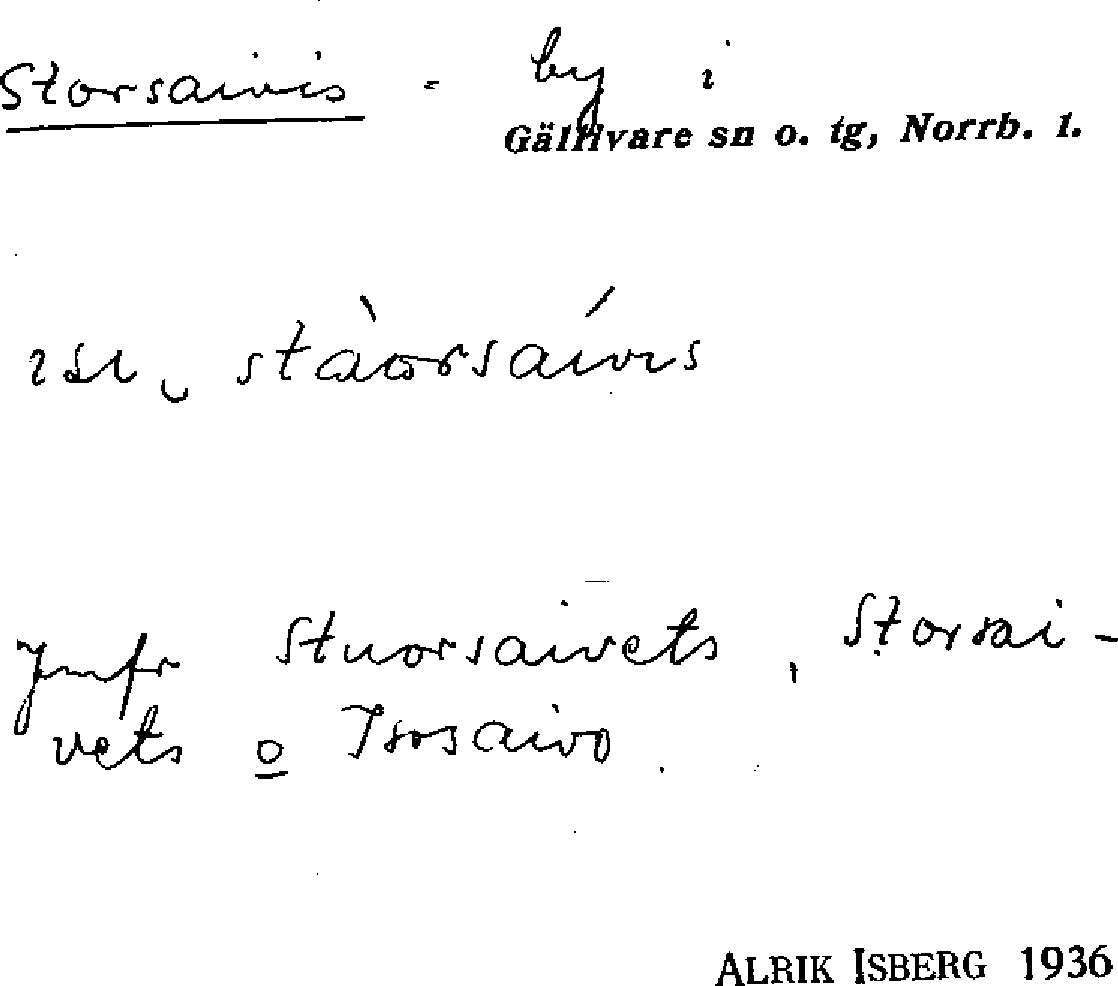 Storsaivis - by i
Gällivare sn o. tg, Norrb. l.
stàorsáivis
Jmfr Stuorsaivets, Storsai-
vets o Isosaivo.
ALRIK ISBERG 1936